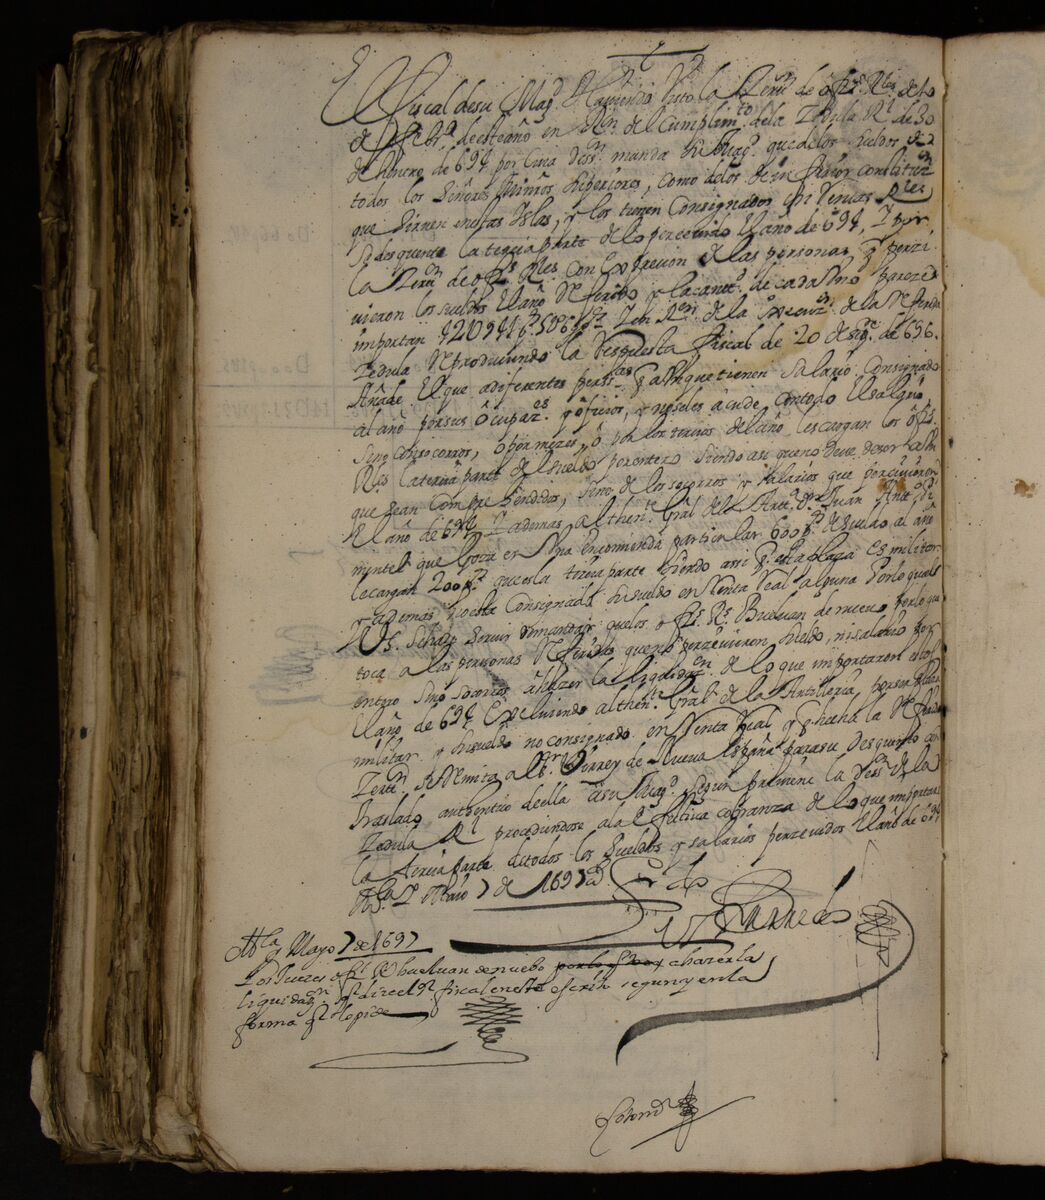 El Fiscal de su Magd Haviendo visto la Zertn de ofizs Rles de 10
de Febro de este año en Rn del Cumplimto de la Zedula Rl de 30
de Henero de 694 por Cuia dessn manda su Magd que de los sueldos de
todos los señores Minros superiores, como de los de inferior
que sirven en estas Islas, y los tienen Consignados en Rentas Rles
se desquente la terzia parte de lo percevido el año de 694, Y por
la Zertn de ofizs Rles con Exprecion de las personas q perzi
vieron los sueldos el año Referido y la cantd de cada uno parece
importan 421094 de la Referida
Zedula Reproduciendo la Respuesta fiscal de 20 de de 696.
Añade El que a diferentes perss q aunque tienen salario Consignado
al año por sus ocupazes y oficios, no se les acude, con todo El salario
sino con socorros, o por mezes, o por los tercios del año les cargan los ofs
Rls la tercia parte del sueldo por entero siendo assi que no deve de ser
que sean Comprehendidos, sino de los socorros y salarios que percivieron
El año de 694 Y ademas al thente Gral de la Artta Dn Juan Anto Pi
mintel que Goza en una encomienda particular 600 ps de sueldo al año
le cargan 200 ps que es la terzia parte siendo assi q esta plaza es militar
y ademas no esta Consignado su sueldo en Renta Real alguna Por lo qual
Vs. se ha de servir de mandar que los ofs Rs Buelvan de nuevo por lo que
toca a las personas Referidas que no perzevieron sueldo, ni salario por
entero sino socorros a hazer la liquidazn de lo que importaron
El año de 694 Excluiendo al thente Gral de la Artilleria por ser plaza
militar y su sueldo no consignado en Renta Real y q fecha la Referida
Zertn Se Remita al Sr Virrey de Nueva España para su desquento con
traslado authentico de ella a su Magd segun previene la dessn de la
Zedula Rl procediendose a la efectiva cobranza de lo que importare
la tercia parte de todos los sueldos y salarios perzevidos El año de 694
Mla Y Maio 7 de 1697 as
Mla y Mayo 7 de 1697
Los Juezes ofs Rs buelvan de nuebo por lo q toca, a hazer la
liquidazn q dize el sr fiscal en este escrito segun y en la
forma q lo pide